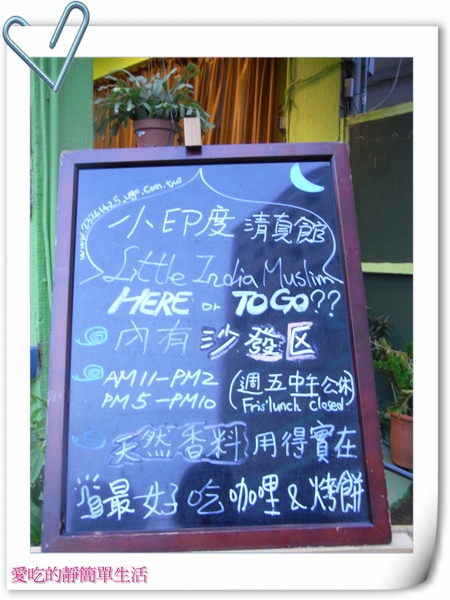 www.2326425.ugo.com.tw
小印度 清真館
Little India Muslim
HERE or TO GO??
內有沙發区
AM11-PM2
(週五中午公休)
PM5-PM10
Fris' lunch closed
天然香料 用得實在
當最好吃咖哩&烤餅
愛吃的靜簡單生活